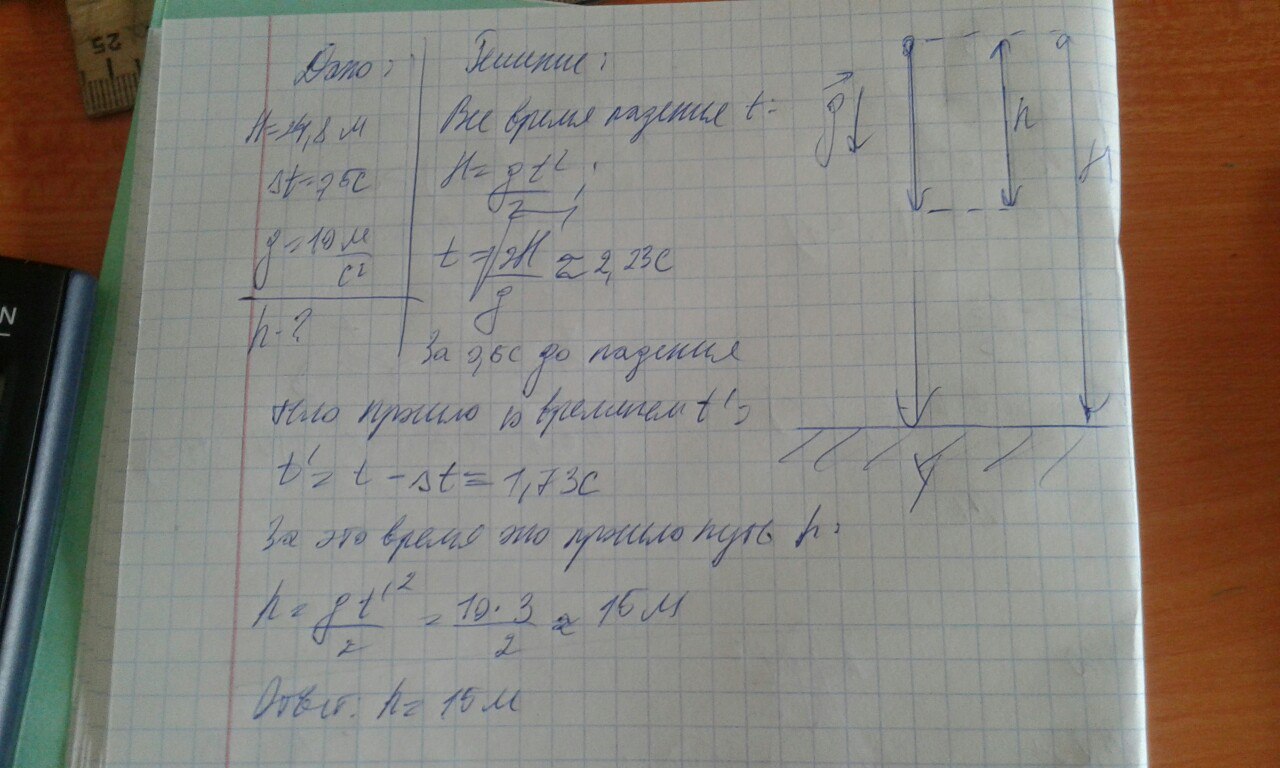 25
N
Дано:
H=24,8 м
Δt=0,5с
g=10 м/с²
h-?
Решение:
Все время падения t:
H=gt²/2;
t=√(2H/g)≈2,23с
За 0,5с до падения
тело прошло в времинем t':
t'=t-Δt=1,73с
За это время оно прошло путь h:
h=gt'²/2=10·3/2≈15м
Ответ: h=15м
g↓
h
H
Y